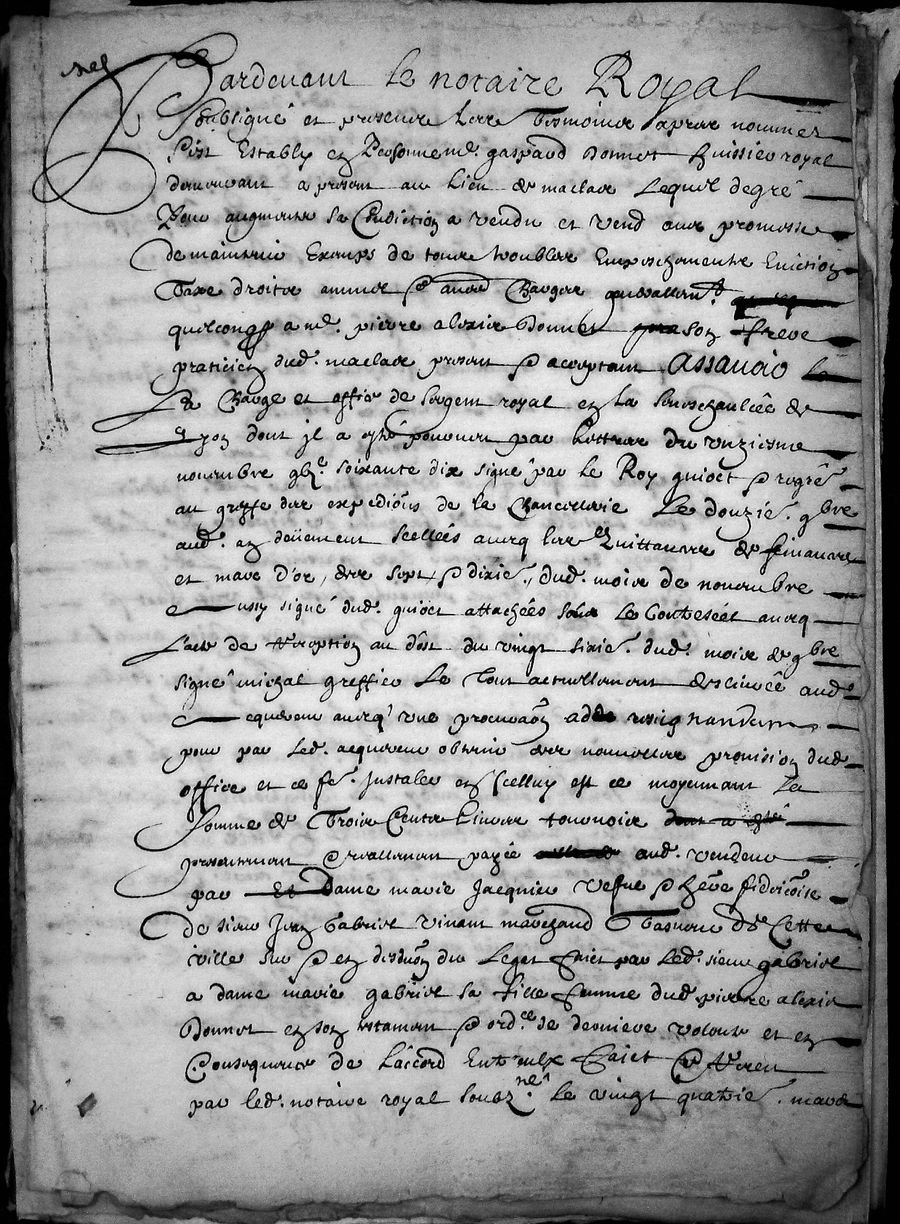 Pardevant le notaire Royal
Soubsigné et presence des tesmoings apres nommez
S'est Estably en Personne me. gaspard Donnet huissier royal
demeurant a present au lieu de maclas Lequel de gré
Pour augmenter sa Condiction a vendu et vend avec promesse
de maintenir Exempt de tous troubles Empeschementz Eviction
Taxe droitz annuel & autres Charges
quelconqs a me. pierre alexis Donnet son frere
praticien dud. maclas present & acceptant Assavoir
La Charge et office de sergent royal en la seneschaulcée de
Lyon dont jl a esté pourveu par Lettres du unziesme
novembre gbj.c soixante dix signé par le Roy guiost & regré
au greffe des expediõns de la Chancellerie Le douzie. gbre
aud. an deüement scellées avecq les Quittances de finances
et marc d'or, des sept & dixie. dud. mois de novembre
aussy signé dud. guiost attachées soubs Le Contrescel avecq
Lacte de reception au dos du vingt sixie. dud. mois de gbre
signé michal greffier Le Tout actuellement delivré aud.
acquereur avecq' une procuraõn ad resignandum
pour par Led. acquereur obtenir des nouvelles provision dud.
office et ce fe. Jnstaler en Jcelluy est ce moyennant La
somme de Trois Centz Livres tournois dont a esté
presentement & reallement payée aud. vendeur
par Et Dame marie Jacquier vefve & here fiduciaire
de sieur Jean Gabriel vivant marchand Tasneur de Cette
ville sur & en diduõn du Legat faict par Led. sieur gabriel
a dame marie gabriel sa fille femme dud. pierre alexis
Donnet en son testament & ord.ce de derniere volonté et en
Consequence de Laccord Entreulx faict & receu
par led. notaire royal soubz.né Le vingt quatrie. mars